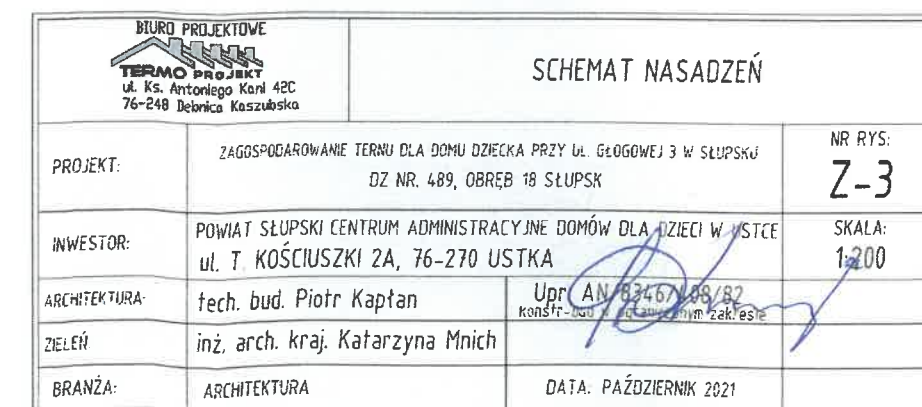 BIURO PROJEKTOWE
TERMO PROJEKT
ul. Ks. Antoniego Kani 42C
76-248 Dębnica Kaszubska
SCHEMAT NASADZEŃ
PROJEKT:
ZAGOSPODAROWANIE TERNU DLA DOMU DZIECKA PRZY UL. GŁOGOWEJ 3 W SŁUPSKU
DZ NR. 489, OBRĘB 18 SŁUPSK
NR RYS:
Z-3
INWESTOR:
POWIAT SŁUPSKI CENTRUM ADMINISTRACYJNE DOMÓW DLA DZIECI W USTCE
ul. T. KOŚCIUSZKI 2A, 76-270 USTKA
SKALA:
1:200
ARCHITEKTURA:
tech. bud. Piotr Kapłan
Upr AN/8346/ 98/82
konstr-bud w ograniczonym zakresie
ZIELEŃ
inż. arch. kraj. Katarzyna Mnich
BRANŻA:
ARCHITEKTURA
DATA: PAŹDZIERNIK 2021